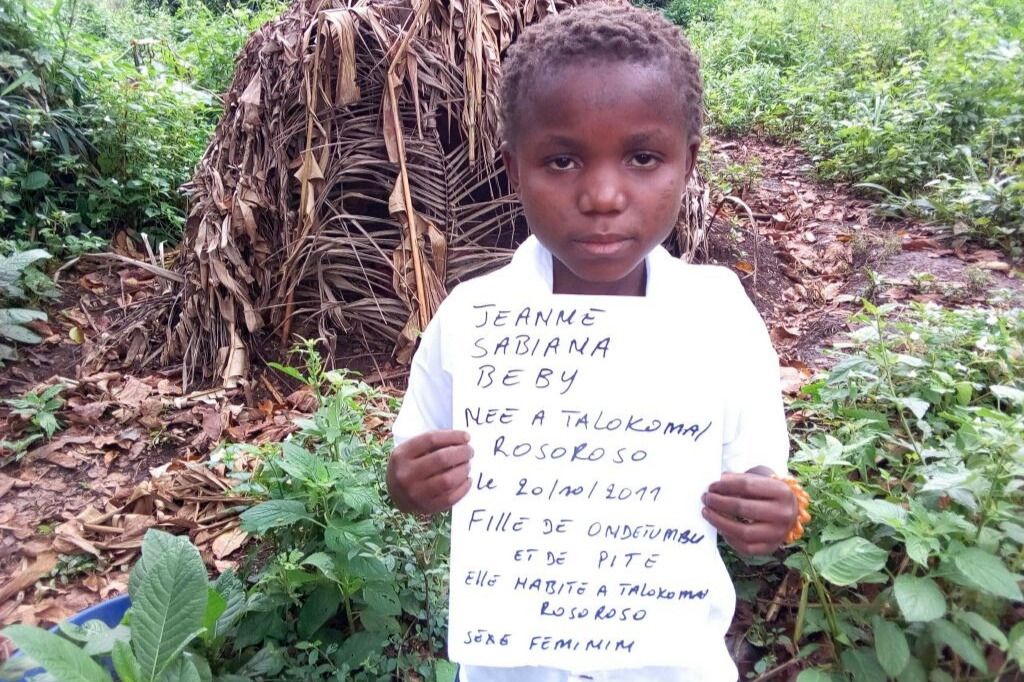 JEANNE
SABIANA
BEBY
NEE A TALOKOMA/
ROSOROSO
le 20/10/2011
FILLE DE ONDETUMBU
ET DE PITE
ELLE HABITE A TALOKOMA/
ROSOROSO
SEXE FEMININ